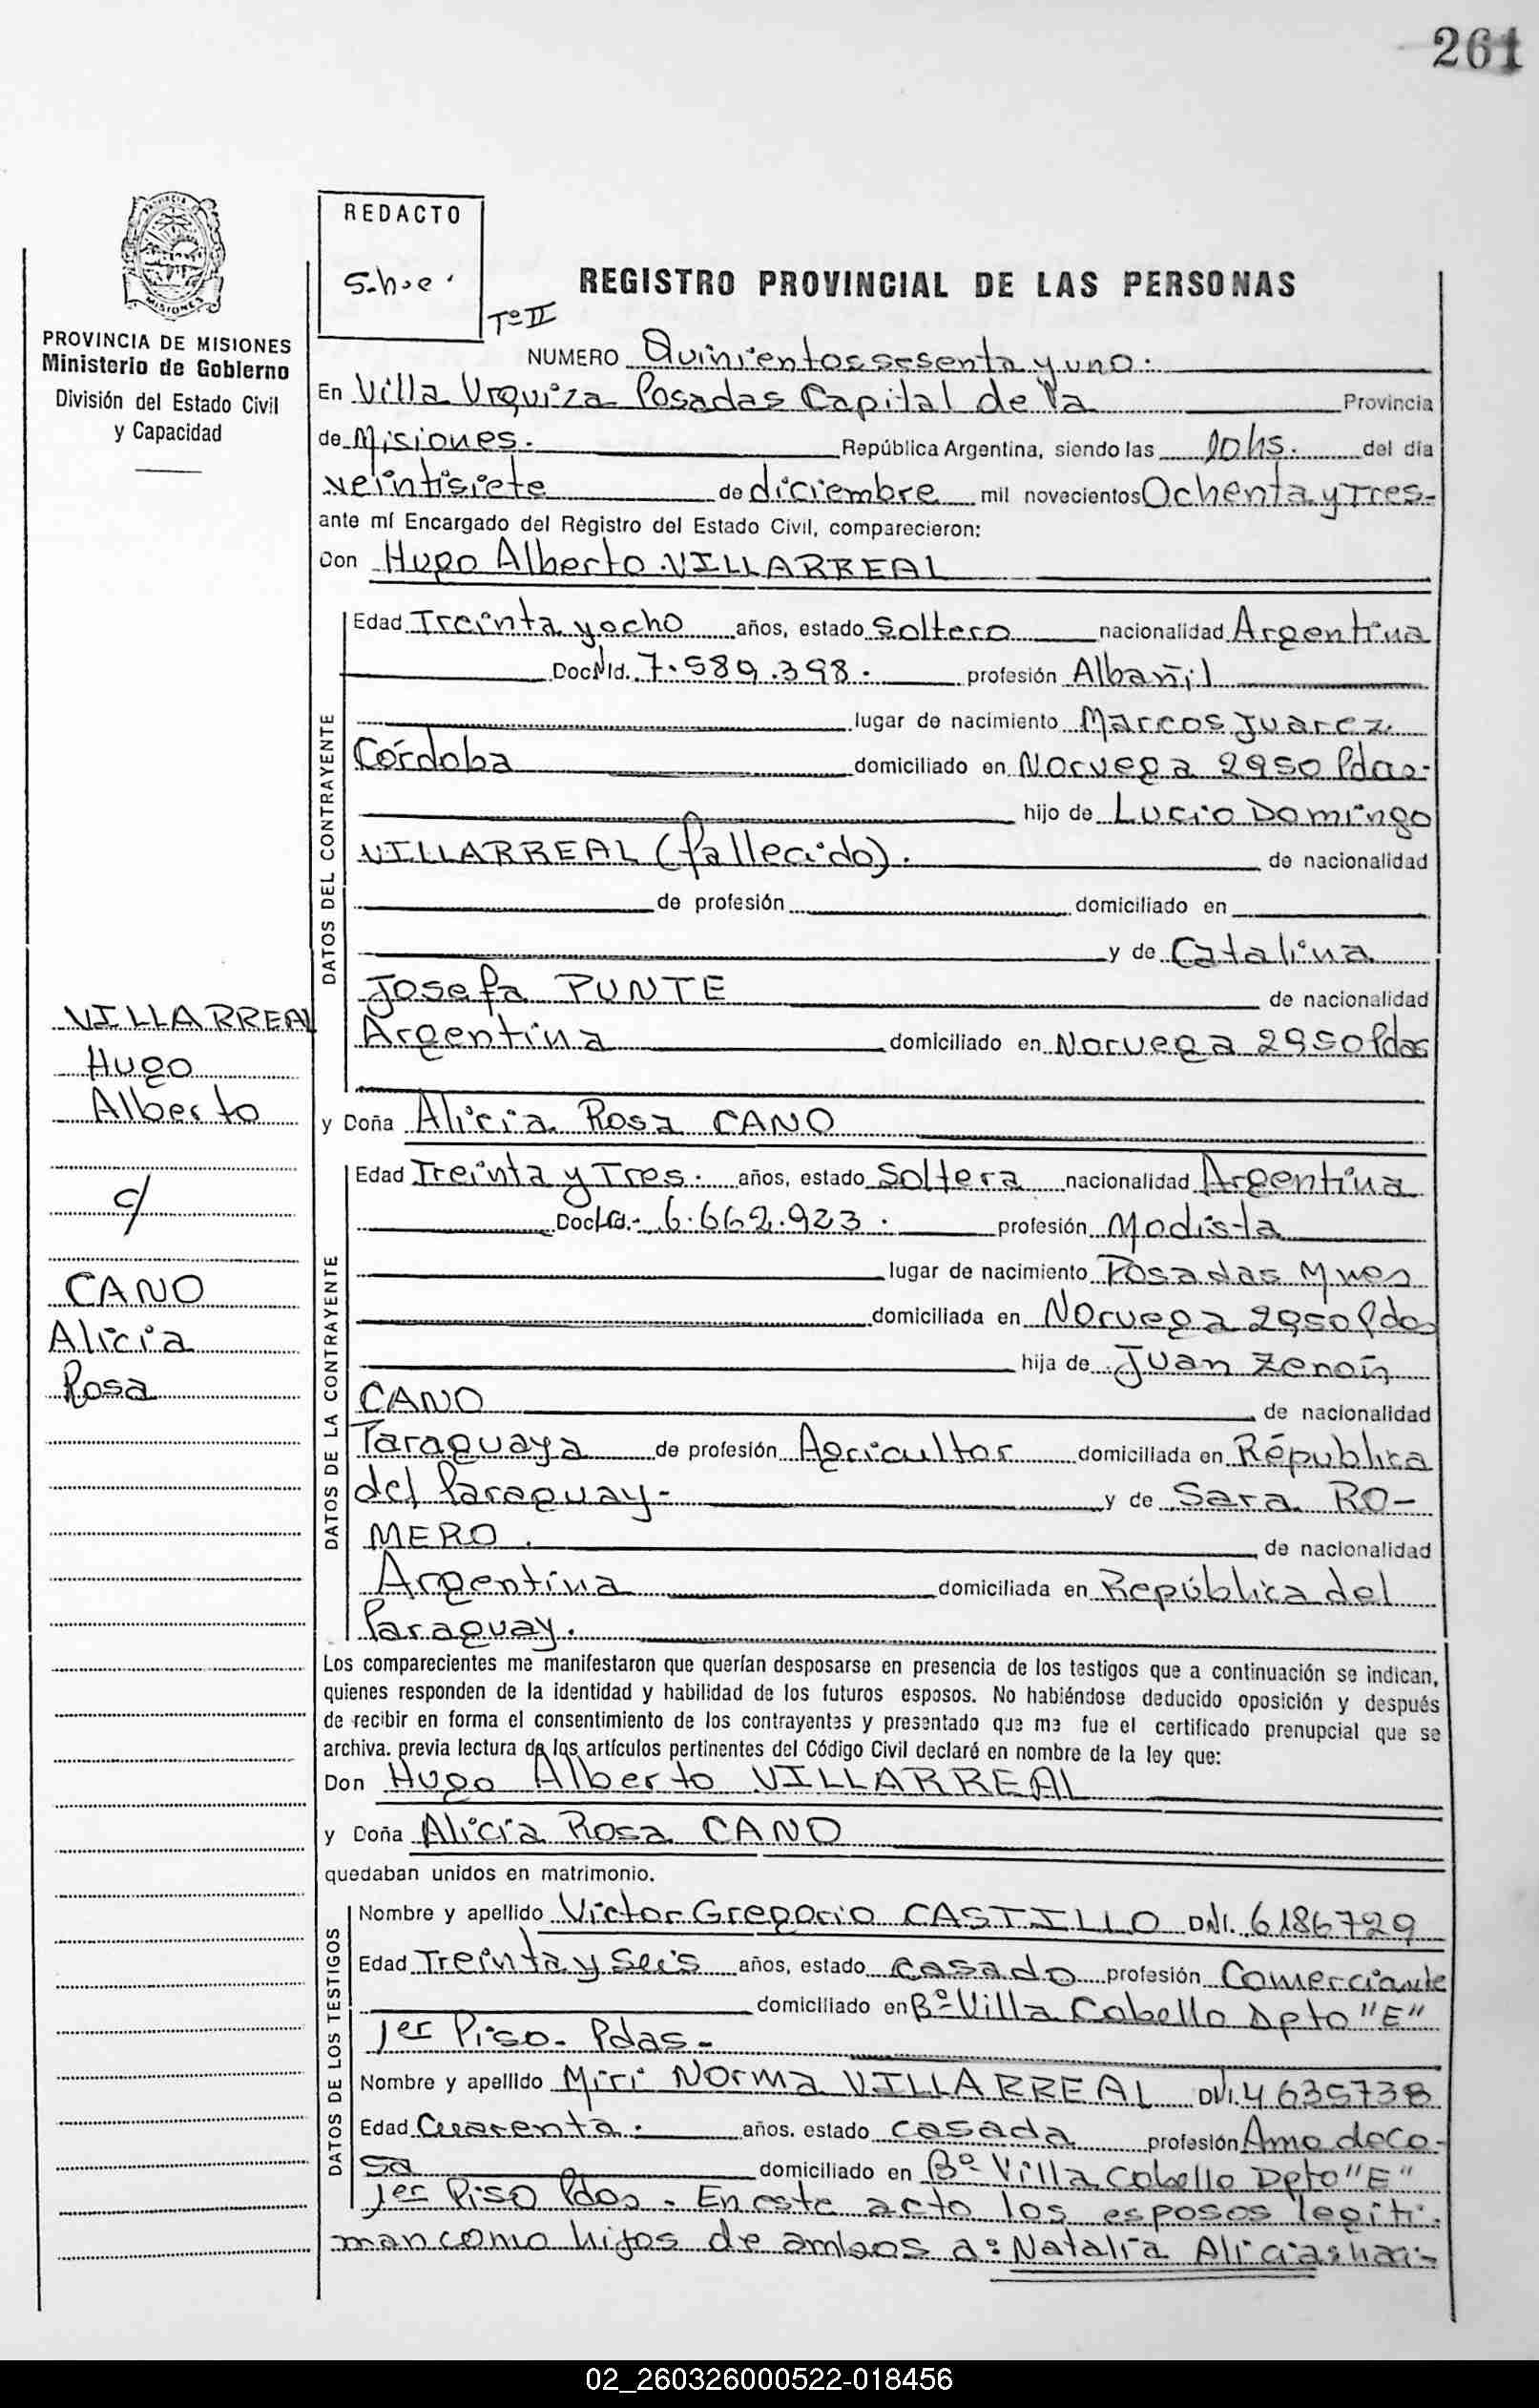 261
REDACTO
S.h.e.
MISIONES
PROVINCIA DE MISIONES
Ministerio de Gobierno
División del Estado Civil
y Capacidad
REGISTRO PROVINCIAL DE LAS PERSONAS
Tº II
NUMERO Quinientos sesenta y uno.
En Villa Urquiza Posadas Capital de la Provincia
de Misiones. República Argentina, siendo las 10hs. del día
veintisiete de diciembre mil novecientos Ochenta y Tres-
ante mí Encargado del Registro del Estado Civil, comparecieron:
Don Hugo Alberto VILLARREAL
DATOS DEL CONTRAYENTE
Edad Treinta y ocho años, estado Soltero nacionalidad Argentina
Doc.Nº Id. 7.589.398. profesión Albañil
lugar de nacimiento Marcos Juarez
Córdoba domiciliado en Noruega 2950 Pdas-
hijo de Lucio Domingo
VILLARREAL (fallecido). de nacionalidad
de profesión domiciliado en
y de Catalina
Josefa PUNTE de nacionalidad
Argentina domiciliado en Noruega 2950 Pdas
VILLARREAL
Hugo
Alberto
c/
CANO
Alicia
Rosa
y Doña Alicia Rosa CANO
DATOS DE LA CONTRAYENTE
Edad Treinta y Tres. años, estado Soltera nacionalidad Argentina
Doc. Id. 6.662.923. profesión Modista
lugar de nacimiento Posadas Mnes
domiciliada en Noruega 2950 Pdas
hija de Juan Zenoín
CANO de nacionalidad
Paraguaya de profesión Agricultor domiciliada en Républica
del Paraguay- y de Sara RO-
MERO. de nacionalidad
Argentina domiciliada en República del
Paraguay.
Los comparecientes me manifestaron que querían desposarse en presencia de los testigos que a continuación se indican,
quienes responden de la identidad y habilidad de los futuros esposos. No habiéndose deducido oposición y después
de recibir en forma el consentimiento de los contrayentes y presentado que me fue el certificado prenupcial que se
archiva. previa lectura de los artículos pertinentes del Código Civil declaré en nombre de la ley que:
Don Hugo Alberto VILLARREAL
y Doña Alicia Rosa CANO
quedaban unidos en matrimonio.
DATOS DE LOS TESTIGOS
Nombre y apellido Victor Gregorio CASTILLO DNI. 6186729
Edad Treinta y Seis años, estado casado profesión Comerciante
domiciliado en Bº Villa Cabello Dpto "E"
1er Piso- Pdas-
Nombre y apellido Miri Norma VILLARREAL DNI. 4635738
Edad Cuarenta. años. estado casada profesión Ama de ca-
sa domiciliado en Bº Villa Cabello Dpto "E"
1er Piso Pdas. En este acto los esposos legiti-
man como hijos de ambos a: Natalia Alicia
02_260326000522-018456